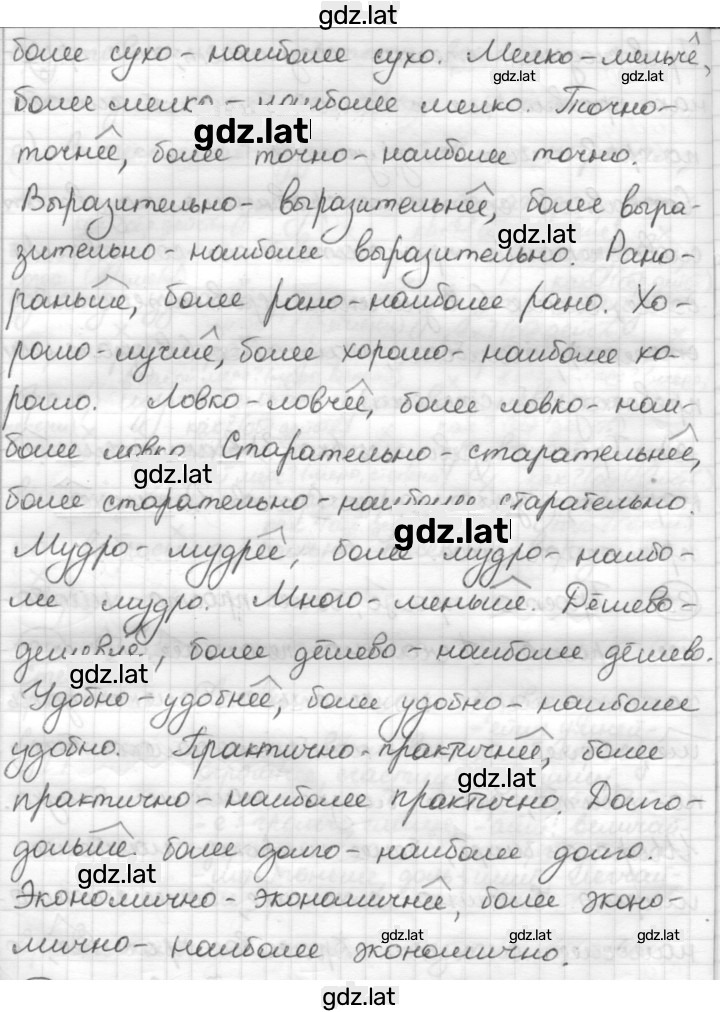 gdz.lat
более сухо - наиболее сухо. Мелко - мельче,
gdz.lat gdz.lat
более мелко - наиболее мелко. Точно -
gdz.lat
точнее, более точно - наиболее точно.
Выразительно - выразительнее, более выра-
gdz.lat
зительно - наиболее выразительно. Рано -
раньше, более рано - наиболее рано. Хо-
рошо - лучше, более хорошо - наиболее хо-
рошо. Ловко - ловчее, более ловко - наи-
более ловко Старательно - старательнее,
gdz.lat
более старательно - наиболее старательно.
gdz.lat
Мудро - мудрее, более мудро - наибо-
лее мудро. Много - меньше. Дёшево -
дешевле, более дёшево - наиболее дёшево.
gdz.lat
Удобно - удобнее, более удобно - наиболее
удобно. Практично - практичнее, более
gdz.lat
практично - наиболее практично. Долго -
дольше более долго - наиболее долго.
gdz.lat
Экономично - экономичнее, более эконо-
мично - наиболее экономично.
gdz.lat gdz.lat gdz.lat
gdz.lat